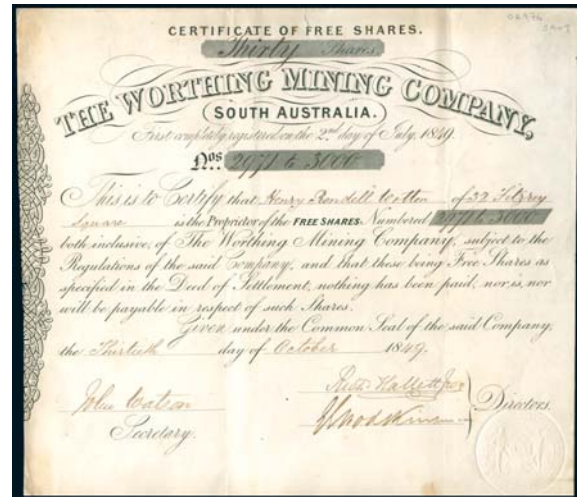 CERTIFICATE OF FREE SHARES.
Thirty Shares.
THE WORTHING MINING COMPANY,
SOUTH AUSTRALIA.
First completely registered on the 2nd day of July 1849.
Nos 2971 to 3000
This is to Certify that Henry Rondell Wotton of 32 Fitzroy
Square is the Proprietor of the FREE SHARES Numbered 2971 to 3000
both inclusive, of The Worthing Mining Company, subject to the
Regulations of the said Company, and that these being Free Shares as
specified in the Deed of Settlement, nothing has been paid, nor is, nor
will be payable in respect of such Shares.
Given under the Common Seal of the said Company,
the Thirtieth day of October 1849.
John Watson
Secretary.
Richd Hallett Junr
Directors.